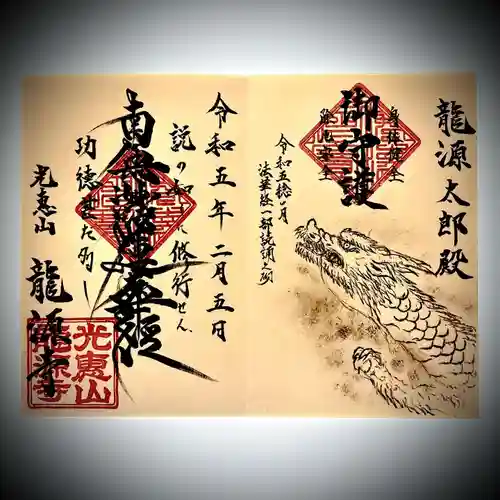 龍源太郎殿
身体健全
御守護
令和五稔二月
法華経一部読誦之砌
令和五年二月五日
説の如く修行せん
南無妙法蓮華経
功徳また多し
光恵山
龍源寺
光恵山
龍源寺